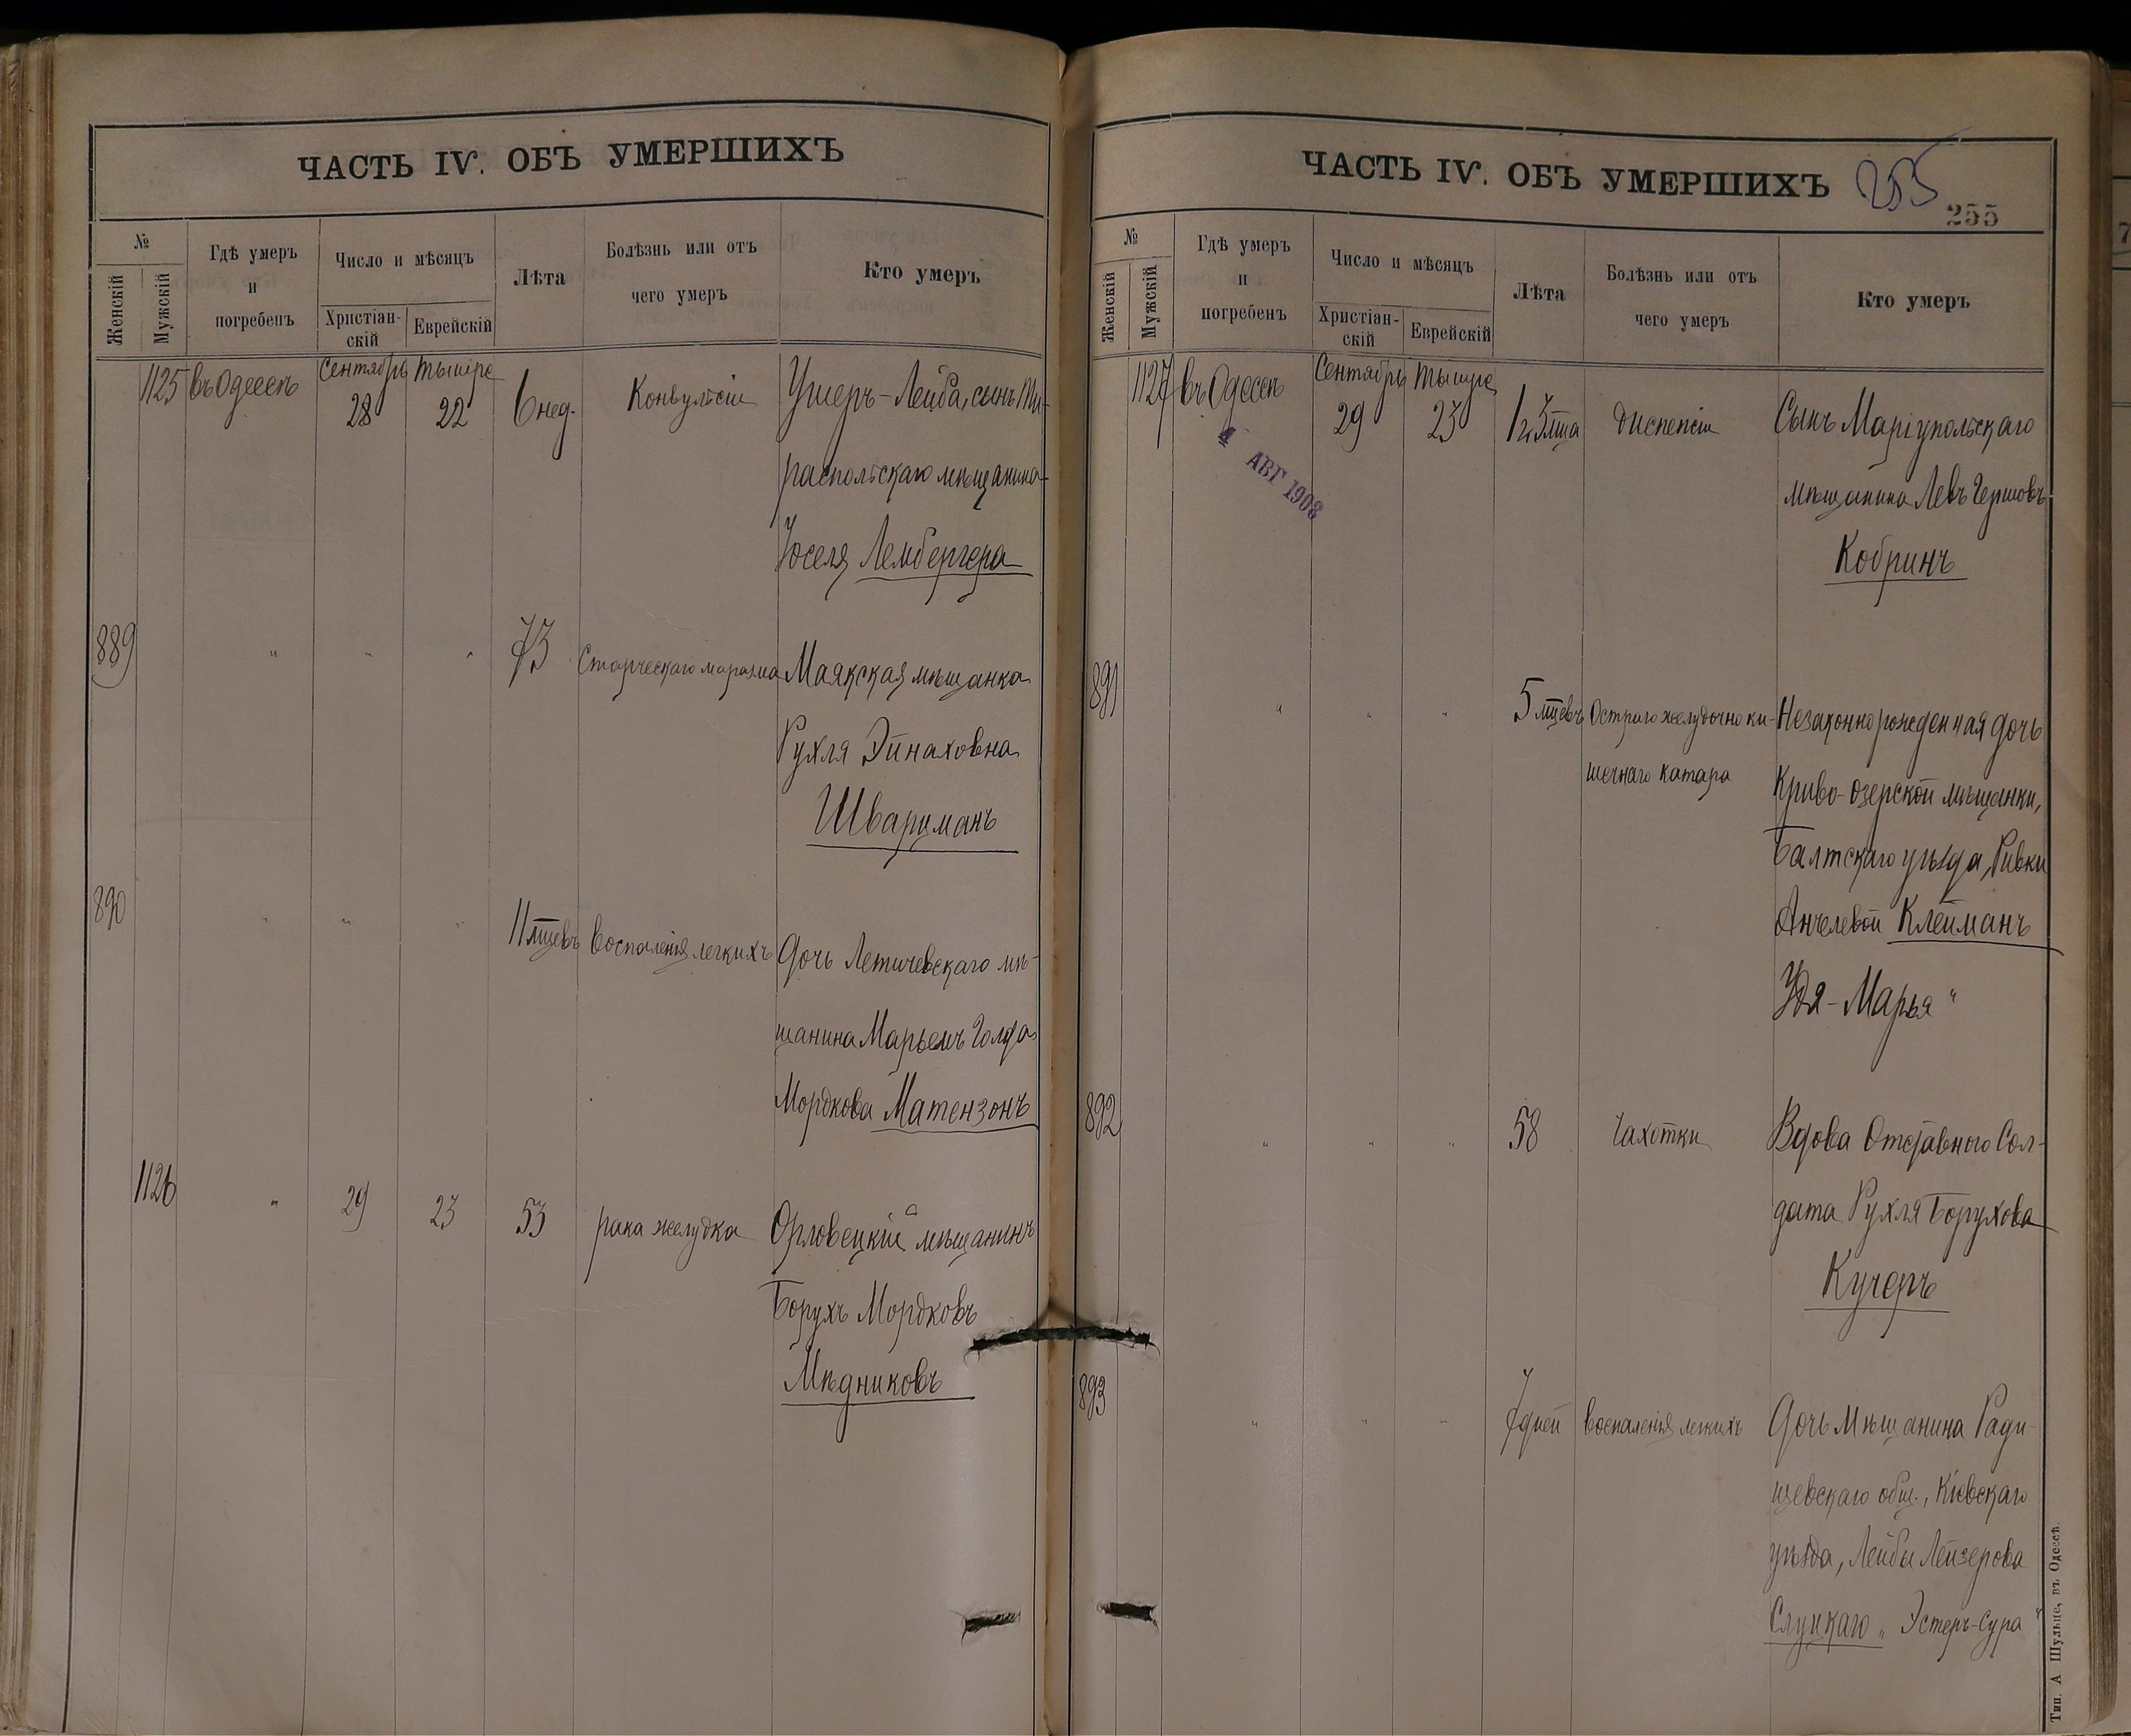 ЧАСТЬ IV. ОБЪ УМЕРШИХЪ
№
Женскій
Мужскій
Гдѣ умеръ
и
погребенъ
Число и мѣсяцъ
Христіан-
скій
Еврейскій
Лѣта
Болѣзнь или отъ
чего умеръ
Кто умеръ
1125 въ Одессѣ Сентябрь 28 Тышре 22 6 нед. Конвульсіи Ушеръ-Лейба, сынъ Ти-
распольскаго мѣщанина
Іоселя Лембергера
889 " " " 73 Старческаго маразма Маякская мѣщанка
Рухля Эйнаховна
Шварцманъ
890 " " " 11 мцевъ Воспаленія легкихъ Дочь Летичевскаго мѣ-
щанина Марьемъ Голда
Мордкова Матензонъ
1126 " 29 23 53 рака желудка Орловецкій мѣщанинъ
Борухъ Мордковъ
Мѣдниковъ
ЧАСТЬ IV. ОБЪ УМЕРШИХЪ
255
255
№
Женскій
Мужскій
Гдѣ умеръ
и
погребенъ
Число и мѣсяцъ
Христіан-
скій
Еврейскій
Лѣта
Болѣзнь или отъ
чего умеръ
Кто умеръ
1127 въ Одессѣ Сентябрь 29 Тышре 23 диспепсіи Сынъ Маріупольскаго
мѣщанина Левъ Гершовъ
Кобринъ
4 АВГ 1908
891 " " " 5 мцевъ Остраго желудочно ки- Незаконнорожденная дочь
шечнаго катара Криво-озерской мѣщанки,
Балтскаго уѣзда, Ривки
Анчелевой Клейманъ
Удя-Марья "
892 " " " 58 Чахотки Вдова Отставного Сол-
дата Рухля Борухова
Кучеръ
893 " " " 7 дней воспаленія легкихъ Дочь Мѣщанина Ради-
щевскаго общ., Кіевскаго
уѣзда, Лейбы Лейзерова
Слуцкаго „ Эстеръ-Сура "
Тип. А Шульце, въ Одессѣ.